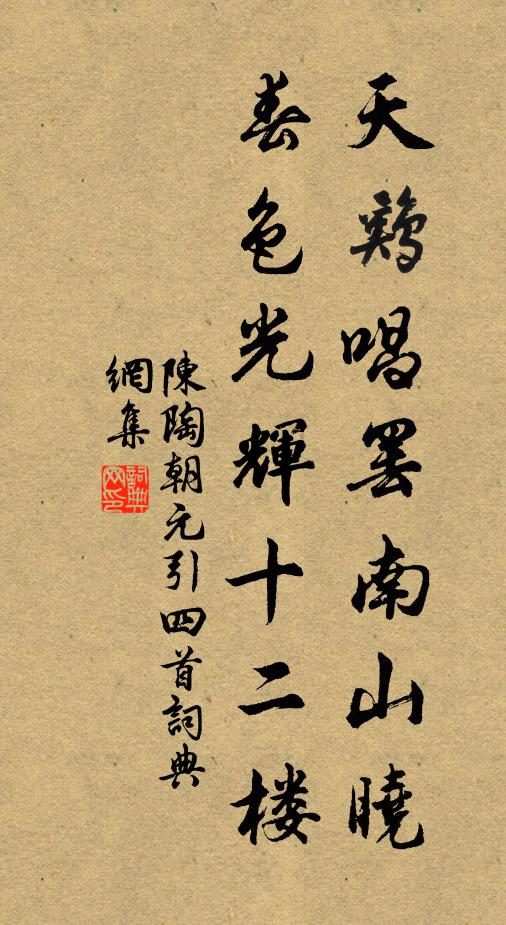 天鷄唱罢南山曉
春色光輝十二楼
陳陶朝元引四首詞典
網集
詞典网印